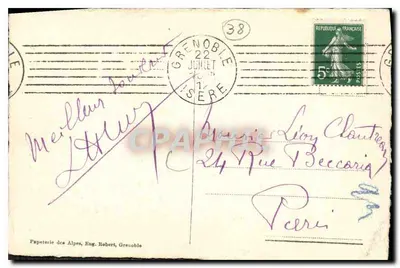 38
GRENOBLE
22
JUILLET
ISÈRE
RÉPUBLIQUE FRANÇAISE
5c
POSTES
Meilleur souvenir
Monsieur Léon
24 Rue Beccaria
Paris
Papeterie des Alpes, Eug. Robert, Grenoble